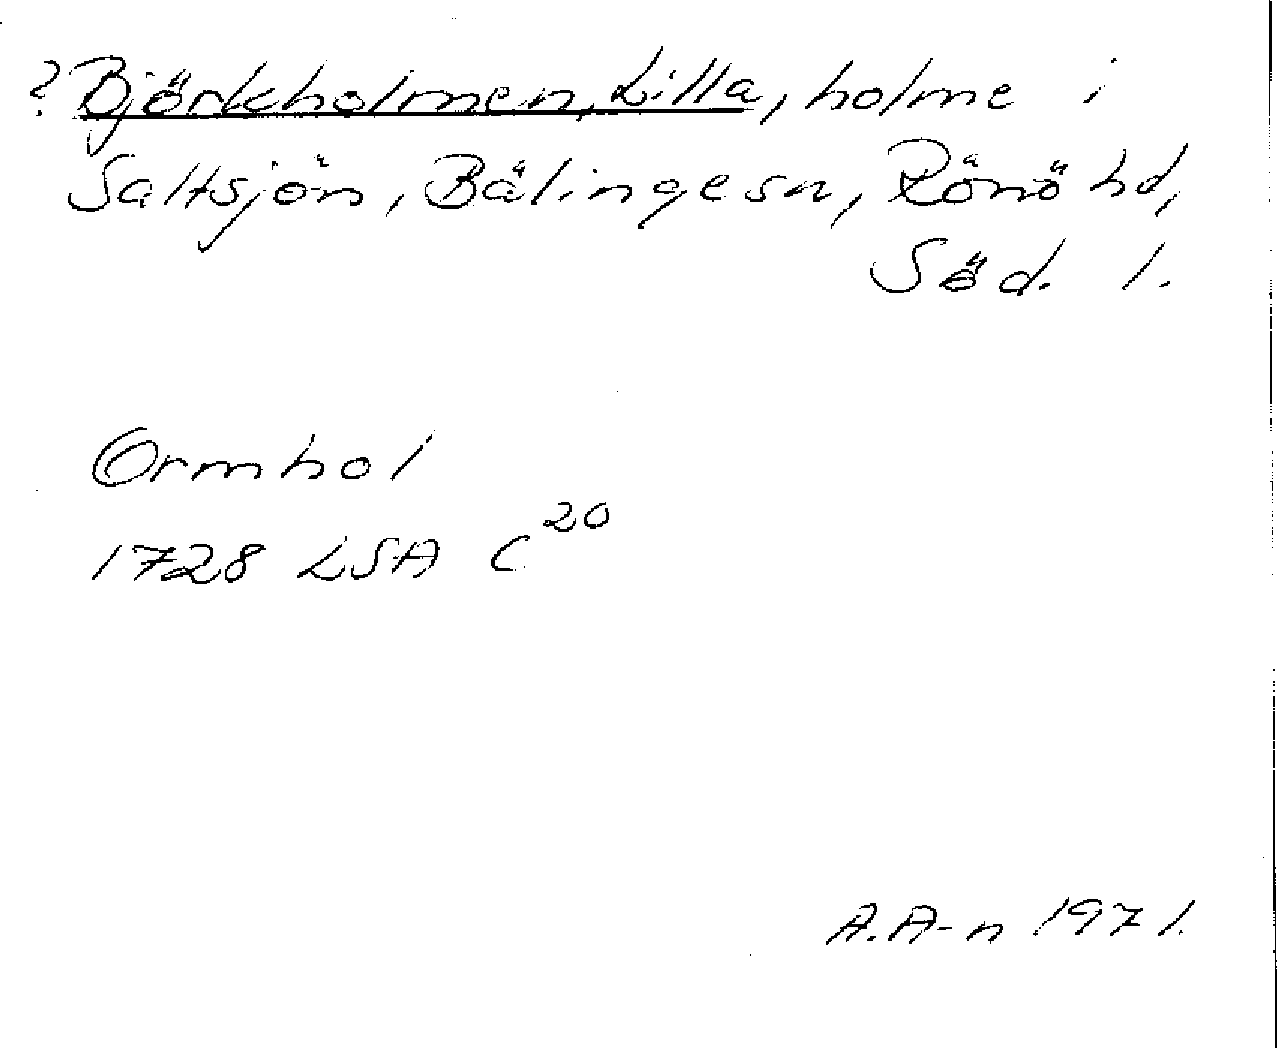 ? Björkholmen, Lilla, holme i
Saltsjön, Bälinge sn, Rönö hd,
Söd. l.
Ormhol
1728 LSA C²⁰
A.A-n 1971.